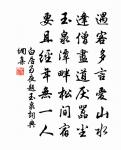 遇客多言愛山水
逢僧盡道厭囂塵
玉泉潭畔松間宿
要且經年無一人
白居易夜題玉泉詞典
網集